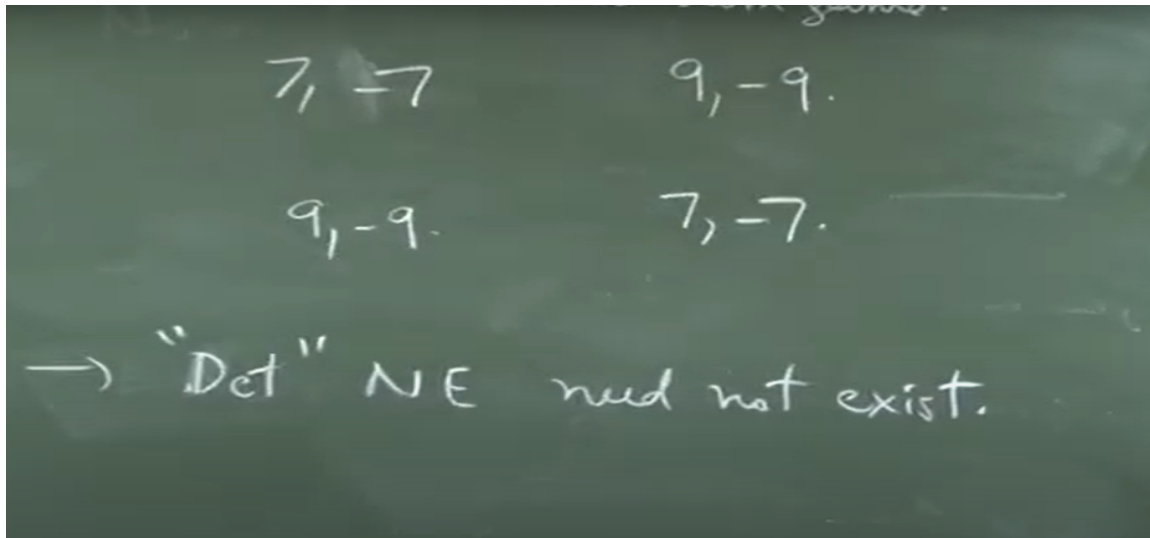 7, -7 9, -9.
9, -9. 7, -7.
→ "Det" NE need not exist.